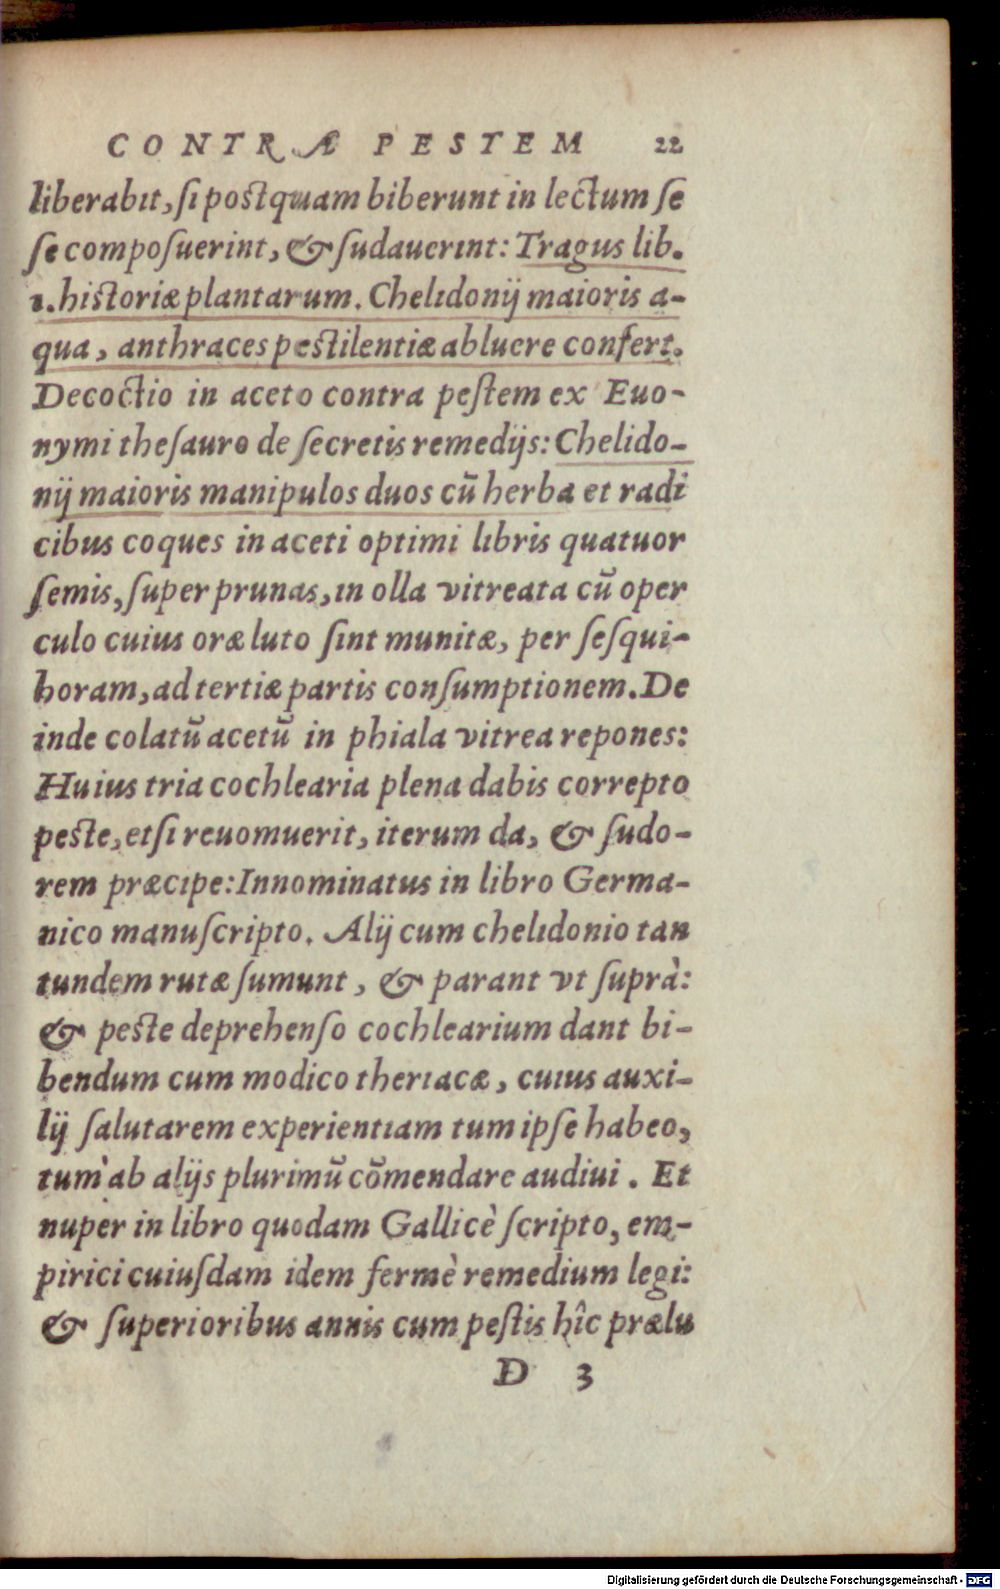 CONTRÆ PESTEM 22
liberabit, ſi poſtquam biberunt in lectum ſe
ſe compoſuerint, & ſudauerint: Tragus lib.
1. hiſtoriæ plantarum. Chelidonij maioris a-
qua, anthraces peſtilentiæ abluere confert.
Decoctio in aceto contra peſtem ex Euo-
nymi theſauro de ſecretis remedijs: Chelido-
nij maioris manipulos duos cū herba et radi
cibus coques in aceti optimi libris quatuor
ſemis, ſuper prunas, in olla vitreata cū oper
culo cuius oræ luto ſint munitæ, per ſeſqui-
horam, ad tertiæ partis conſumptionem. De
inde colatū acetū in phiala vitrea repones:
Huius tria cochlearia plena dabis correpto
peſte, et ſi reuomuerit, iterum da, & ſudo-
rem præcipe: Innominatus in libro Germa-
nico manuſcripto. Alij cum chelidonio tan
tundem rutæ ſumunt, & parant vt ſuprà:
& peſte deprehenſo cochlearium dant bi-
bendum cum modico theriacæ, cuius auxi-
lij ſalutarem experientiam tum ipſe habeo,
tum ab alijs plurimū cōmendare audiui. Et
nuper in libro quodam Gallicè ſcripto, em-
pirici cuiuſdam idem fermè remedium legi:
& ſuperioribus annis cum peſtis hîc prælu
D 3
Digitalisierung gefördert durch die Deutsche Forschungsgemeinschaft - DFG